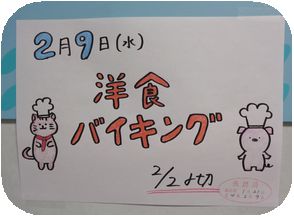 2月9日(水)
洋食
バイキング
2/2〆切